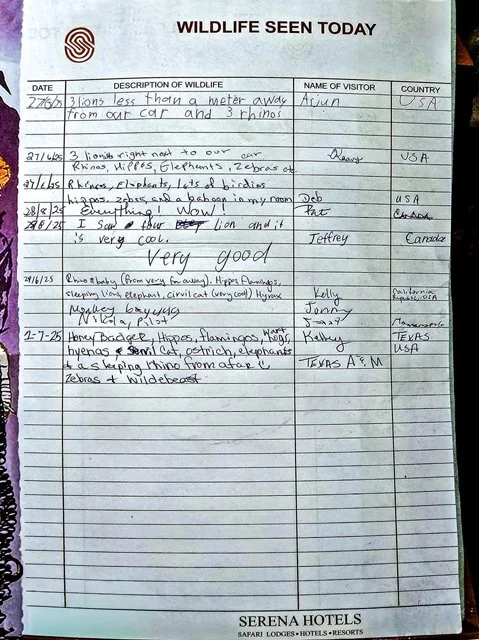 WILDLIFE SEEN TODAY
DATE DESCRIPTION OF WILDLIFE NAME OF VISITOR COUNTRY
27/6/25 3 lions less than a meter away Arjun USA
from our car and 3 rhinos
27/6/25 3 lions right next to our car USA
Rhinos, Hippos, Elephants, Zebras etc
27/6/25 Rhinos, Elephants, lots of birdies
hippos, zebras, and a baboon in my room Deb USA
28/8/25 Everything! Wow! Pat Canada
28/8/25 I saw four lion and it
is very cool. Jeffrey Canada
very good
29/6/25 Rhino & baby (from very far away). Hippos, flamingos, California
sleeping lions, elephant, cirvil cat (very cool) Hyrax Kelly Republic, USA
Monkey Jenny
Nikola, Pilot
2-7-25 Honey Badger, Hippos, flamingos, wart hogs, Kelley TEXAS
hyenas, Servil Cat, ostrich, elephants USA
+ a sleeping rhino from afar TEXAS A & M
Zebras + Wildebeast
SERENA HOTELS
SAFARI LODGES • HOTELS • RESORTS